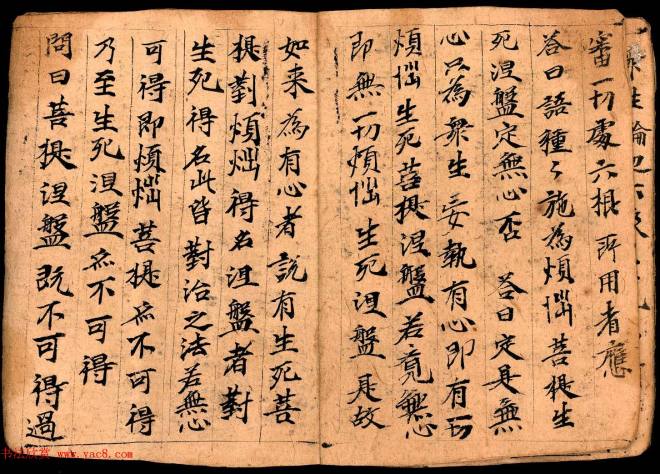 審一切處六根所用者應
答曰語種々施為煩惱菩提生
死涅盤定無心否 答曰定是無
心只為衆生妄執有心即有一切
煩惱生死菩提涅盤若覓無心
即無一切煩惱生死涅盤是故
如来為有心者說有生死菩
提對煩惱得名涅盤者對
生死得名此皆對治之法若無心
可得即煩惱菩提亦不可得
乃至生死涅盤亦不可得
問曰菩提涅盤既不可得過
www.yac8.com